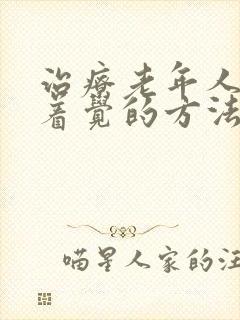 治疗老年人
着觉的方法
喵星人家的汪